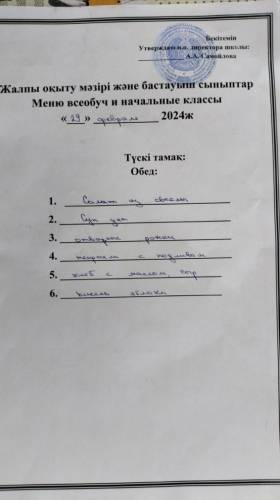 Бекітемін
Утверждаю и.о. директора школы:
А.А. Самойлова
Жалпы оқыту мәзірі және бастауыш сыныптар
Меню всеобуч и начальные классы
« 29 » февраля 2024ж
Түскі тамақ:
Обед:
1. Салат из свеклы
2. Суп
3. отварные рожки
4. с подливом
5. хлеб с маслом, сыр
6. кисель яблоки